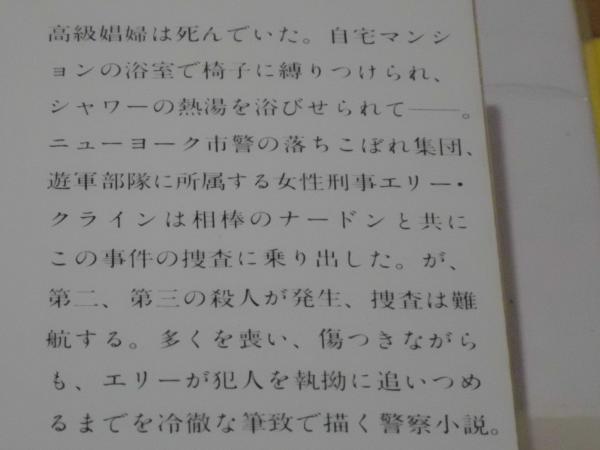 高級娼婦は死んでいた。自宅マンシ
ョンの浴室で椅子に縛りつけられ、
シャワーの熱湯を浴びせられて――。
ニューヨーク市警の落ちこぼれ集団、
遊軍部隊に所属する女性刑事エリー・
クラインは相棒のナードンと共に
この事件の捜査に乗り出した。が、
第二、第三の殺人が発生、捜査は難
航する。多くを喪い、傷つきながら
も、エリーが犯人を執拗に追いつめ
るまでを冷徹な筆致で描く警察小説。